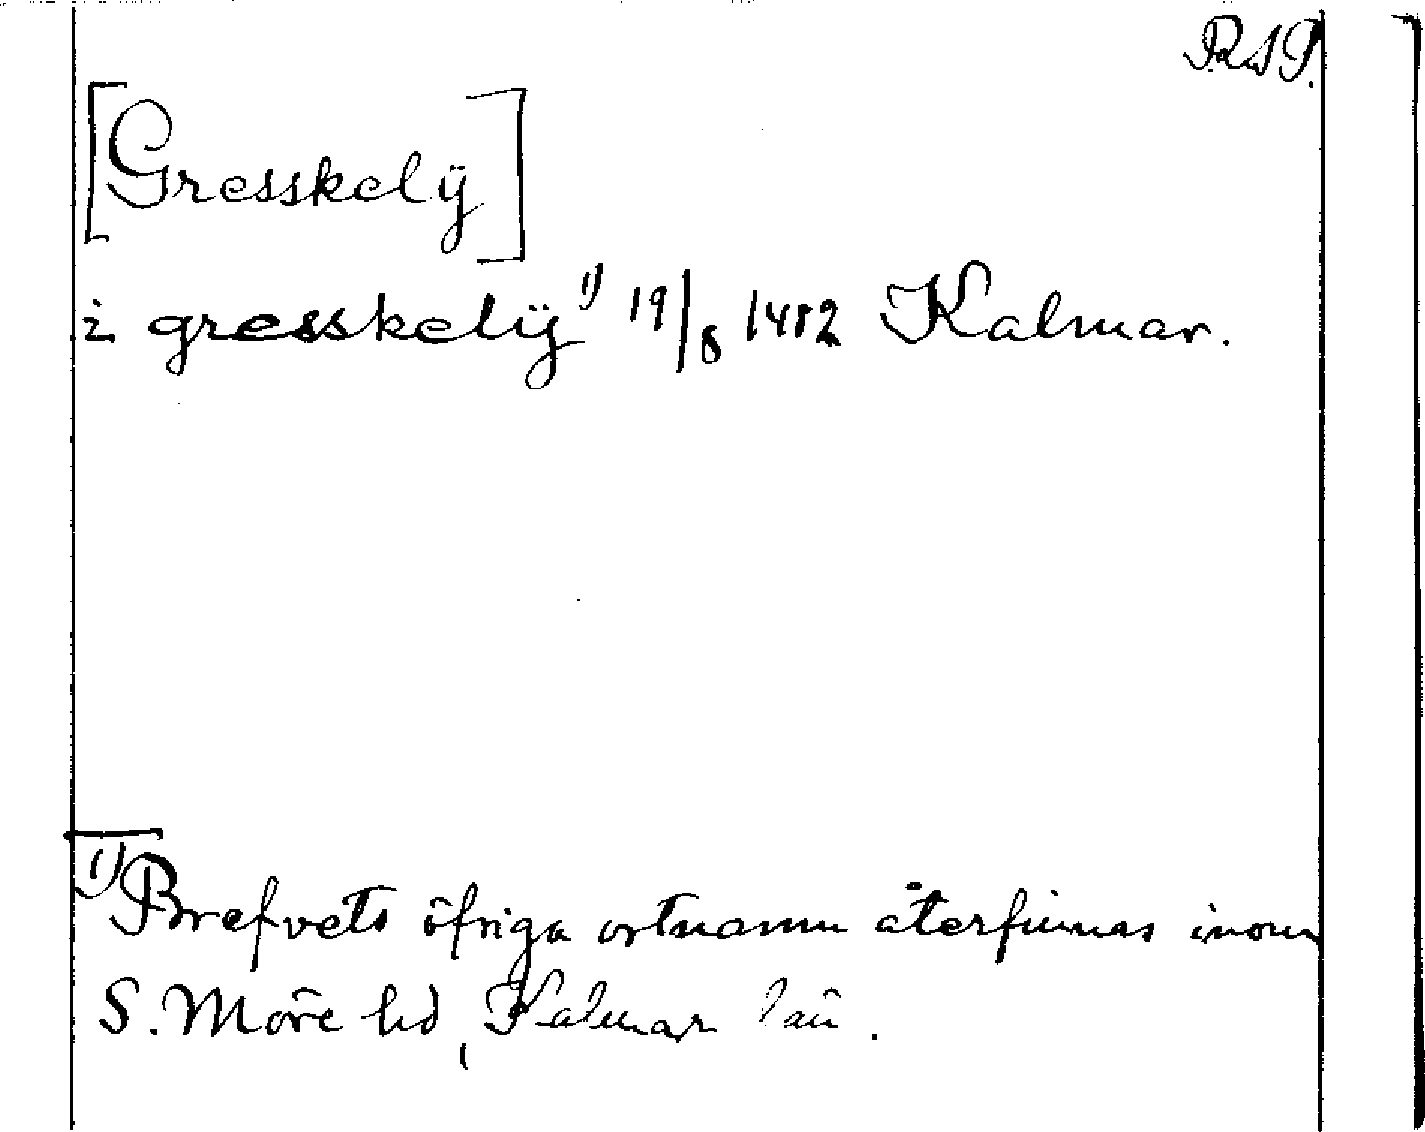 RAP.
[Gresskelÿ]
i gresskelÿ 1) 19/8 1482 Kalmar.
1) Brefvets öfriga ortnamn återfinnas inom
S. Möre hd, Kalmar län.